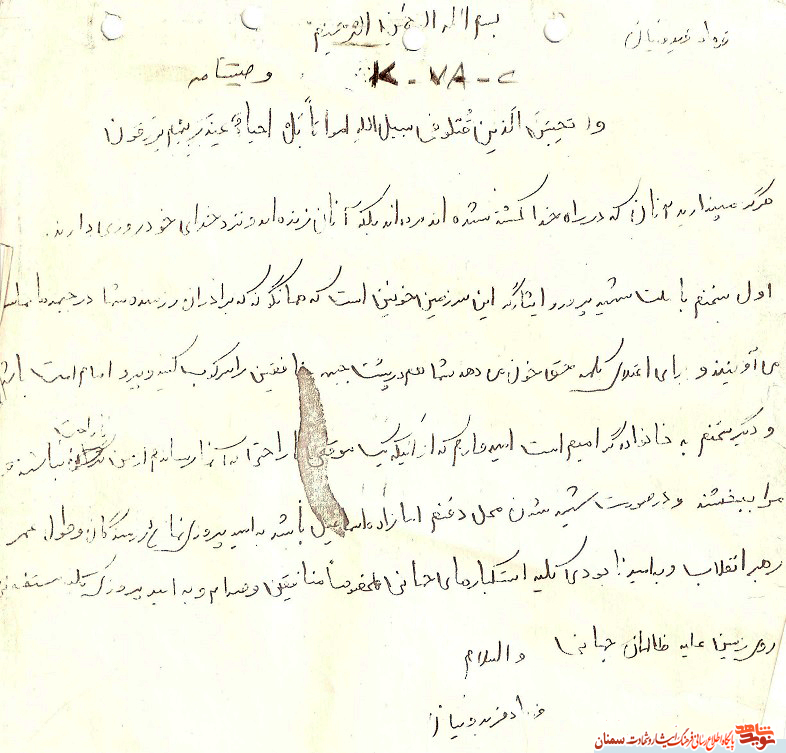 بسم الله الرحمن الرحیم
فرهاد فریدونیان
وصیتنامه
K-78-2
ولا تحسبن الذین قتلوا فی سبیل الله امواتاً بل احیاء عند ربهم یرزقون
هرگز مپندارید آنان که در راه خدا کشته شده اند مرده اند بلکه آنان زنده اند و نزد خدای خود روزی دارند.
اول سخنم با ملت شهید پرور و ایثارگر این سرزمین خونین است که همانگونه که برادران رزمنده شما در جبهه ها حماسه
می آفرینند و برای اعتلای کلمه حق خون می دهند شما هم در پشت جبهه منافقین را سرکوب کنید و پیرو امام امت باشید
و دیگر سخنم به خانواده گرامیم است امیدوارم که از اینکه یک موقعی ناراحتی به آنها رساندم از من ناراحت نباشند و
مرا ببخشند و در صورت شهید شدن محل دفنم امامزاده اسماعیل باشد به امید پیروزی نهایی رزمندگان و طول عمر
رهبر انقلاب و به امید نابودی کلیه استکبارهای جهانی مخصوصاً منافقین و صدام و به امید پیروزی کلیه مستضعفین
روی زمین علیه ظالمان جهانی والسلام
فرهاد فریدونیان
نوید شاهد
پایگاه اطلاع رسانی فرهنگ ایثار و شهادت سمنان